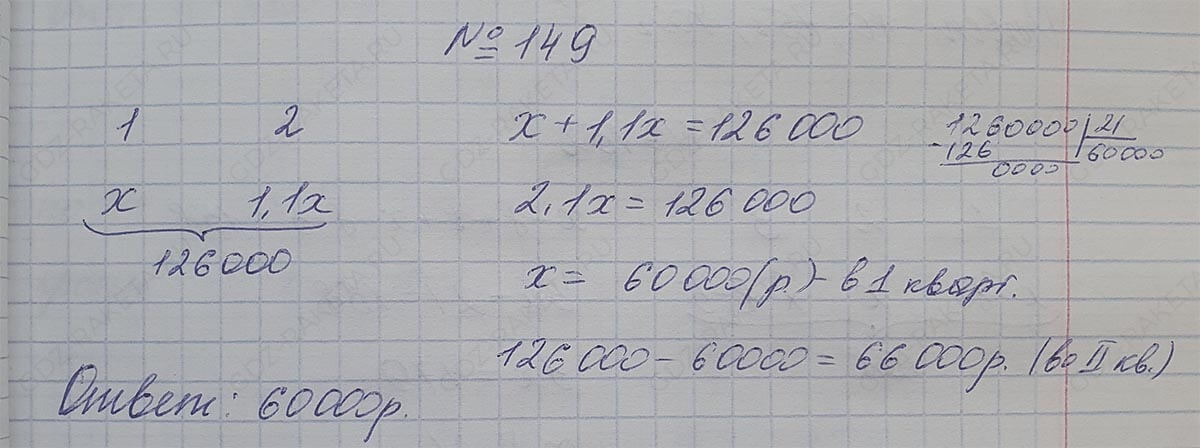 № 149
1 2
x 1,1x
126000
x + 1,1x = 126 000
2,1x = 126 000
x = 60 000 (р.) - в 1 кварт.
126 000 - 60000 = 66 000р. (во II кв.)
1260000 | 21
- 126 60000
0000
Ответ: 60 000р.
GDZ-RAKETA.RU